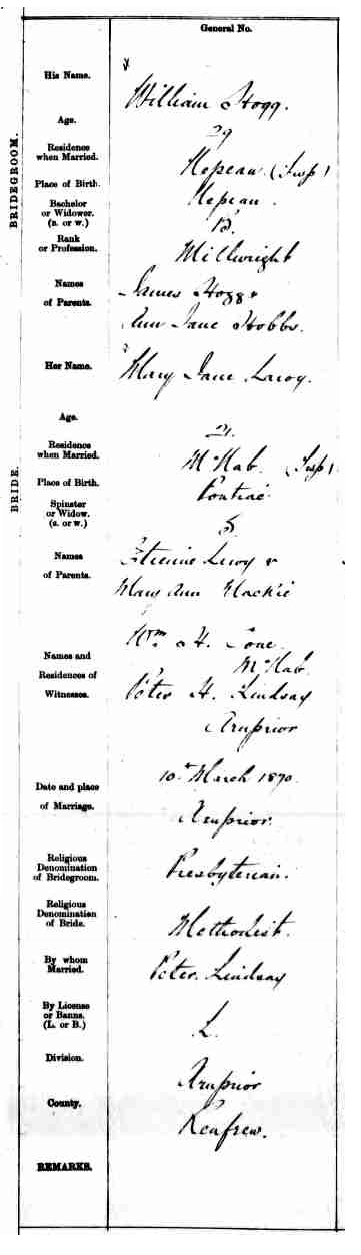 General No.
BRIDEGROOM.
His Name.
William Hogg.
Age.
29
Residence
when Married.
Nepean (Twsp)
Place of Birth.
Nepean.
Bachelor
or Widower.
(B. or W.)
B.
Rank
or Profession.
Millwright
Names
of Parents.
James Hogg &
Ann Jane Hobbs.
BRIDE.
Her Name.
Mary Jane Laroy.
Age.
21.
Residence
when Married.
McNab. (Twsp)
Place of Birth.
Pontiac
Spinster
or Widow.
(S. or W.)
S
Names
of Parents.
Etienne Leroy &
Mary Ann Mackie
Names and
Residences of
Witnesses.
Wm H.
McNab
Peter H. Lindsay
Arnprior
Date and place
of Marriage.
10th March 1870.
Arnprior.
Religious
Denomination
of Bridegroom.
Presbyterian.
Religious
Denomination
of Bride.
Methodist.
By whom
Married.
Peter Lindsay
By License
or Banns.
(L. or B.)
L.
Division.
Arnprior
County.
Renfrew.
REMARKS.